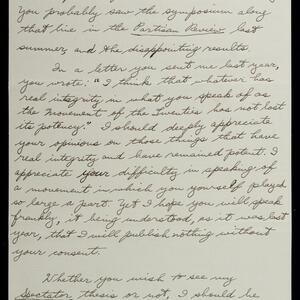 you probably saw the symposium along
that line in the Partisan Review last
summer, and the disappointing results.
In a letter you sent me last year,
you wrote: "I think that whatever has
real integrity in what you speak of as
the movement of the Twenties has not lost
its potency." I should deeply appreciate
your opinions on those things that have
real integrity and have remained potent. I
appreciate your difficulty in speaking of
a movement in which you yourself played
so large a part. Yet I hope you will speak
frankly, it being understood, as it was last
year, that I will publish nothing without
your consent.
Whether you wish to see my
Spectator thesis or not, I should be